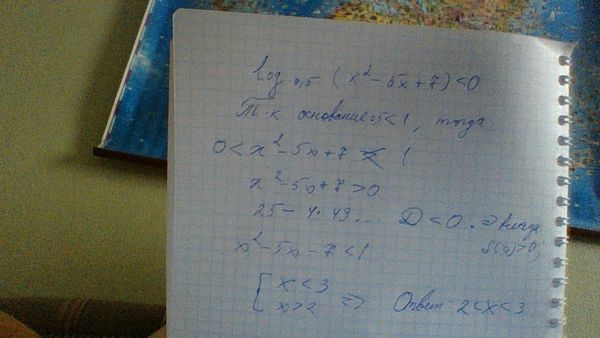 log 0,5 (x² - 5x + 7) < 0
Т.к основание 0,5 < 1, тогда
0 < x² - 5x + 7 < 1
x² - 5x + 7 > 0
25 - 4·49... D < 0. ⇒ всегда
f(x) > 0;
x² - 5x - 7 < 1
{ x < 3
x > 2 ⇒ Ответ 2 < x < 3